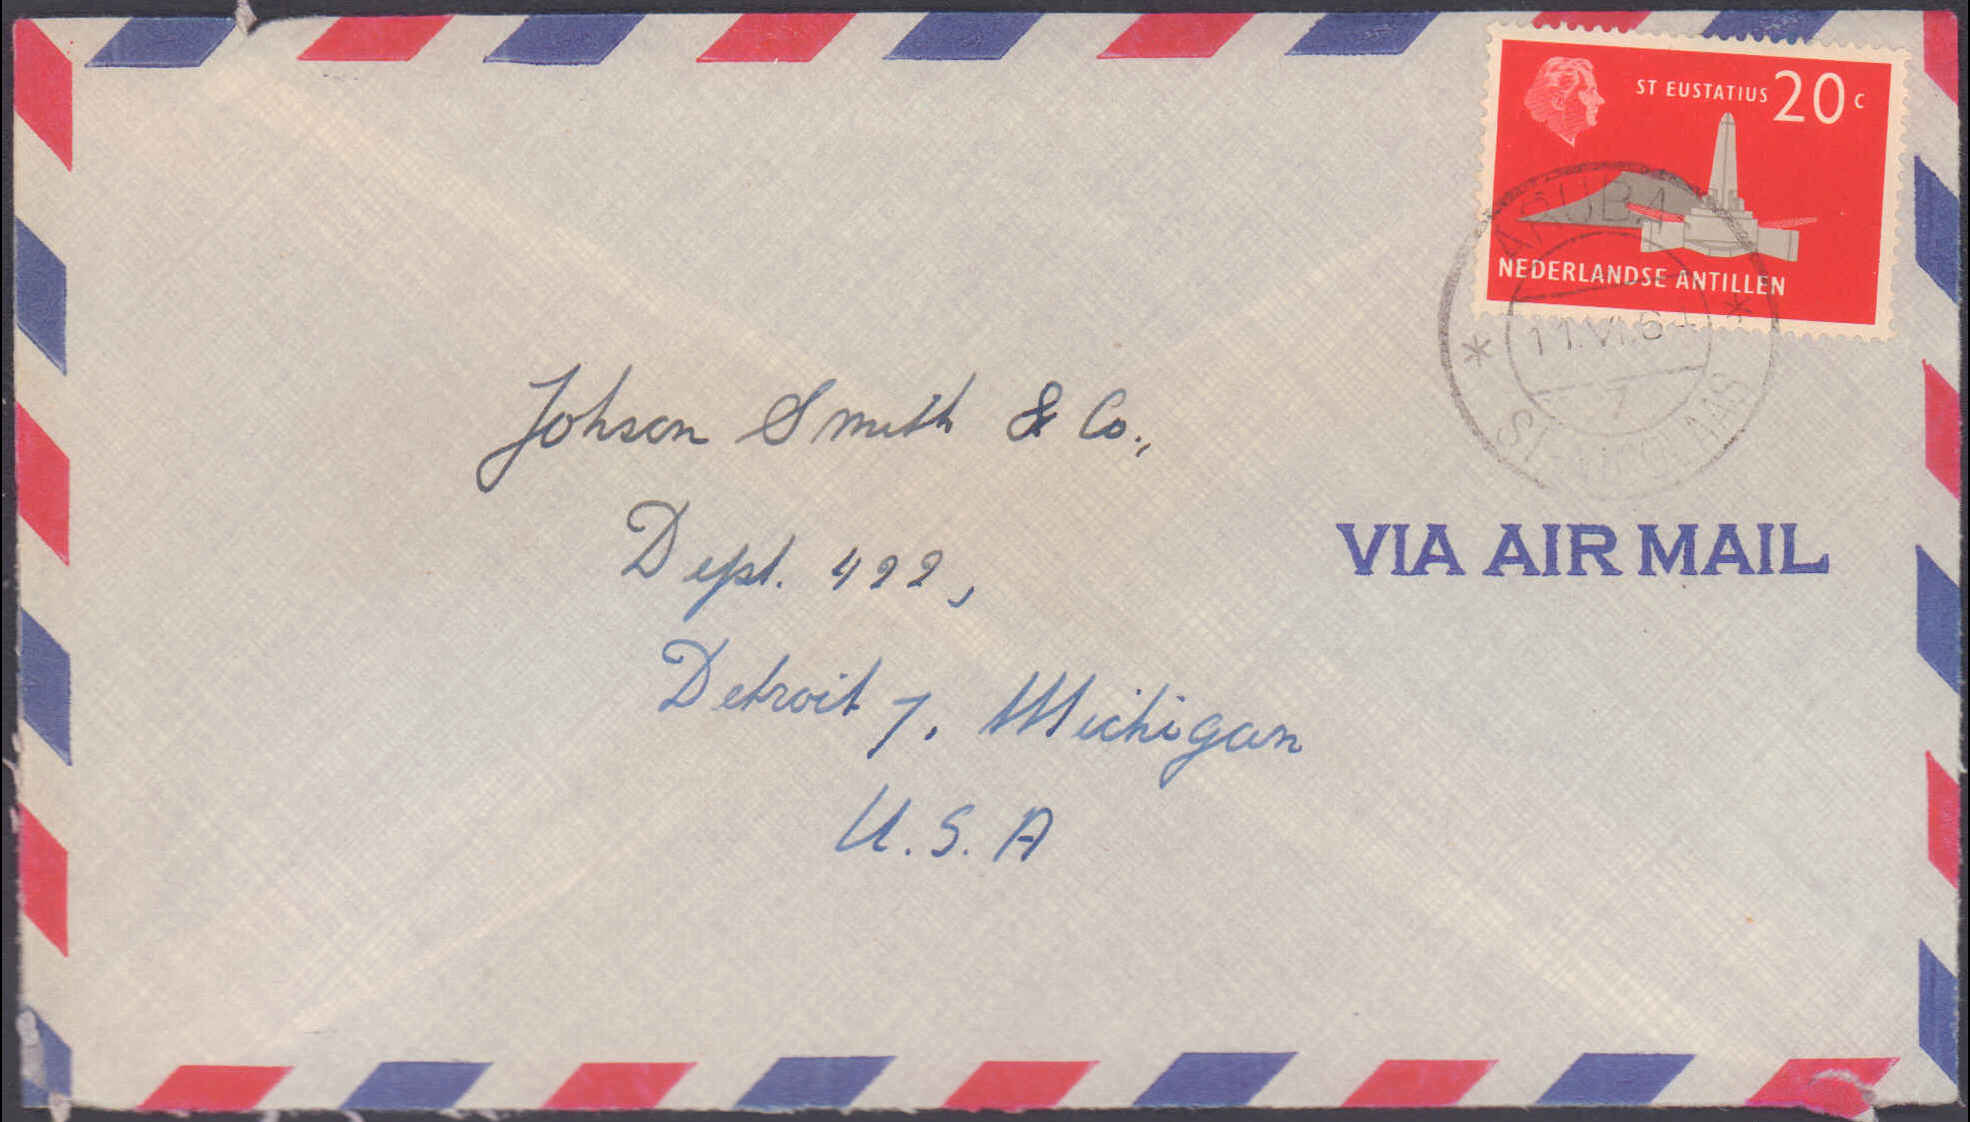 ST EUSTATIUS 20 c
NEDERLANDSE ANTILLEN
ARUBA
11.VI.64
7
ST. NICOLAAS
Johson Smith & Co.,
Dept. 422,
VIA AIR MAIL
Detroit 7. Michigan
U.S.A